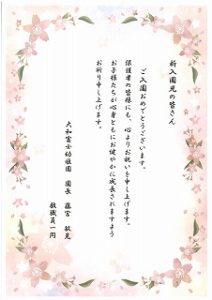 新入園児の皆さん
ご入園おめでとうございます。
保護者の皆様にも、心よりお祝いを申し上げます。
お子様たちが心身ともにお健やかに成長されますよう
お祈り申し上げます。
大和富士幼稚園　園長　藤宮　敏晃
教職員一同